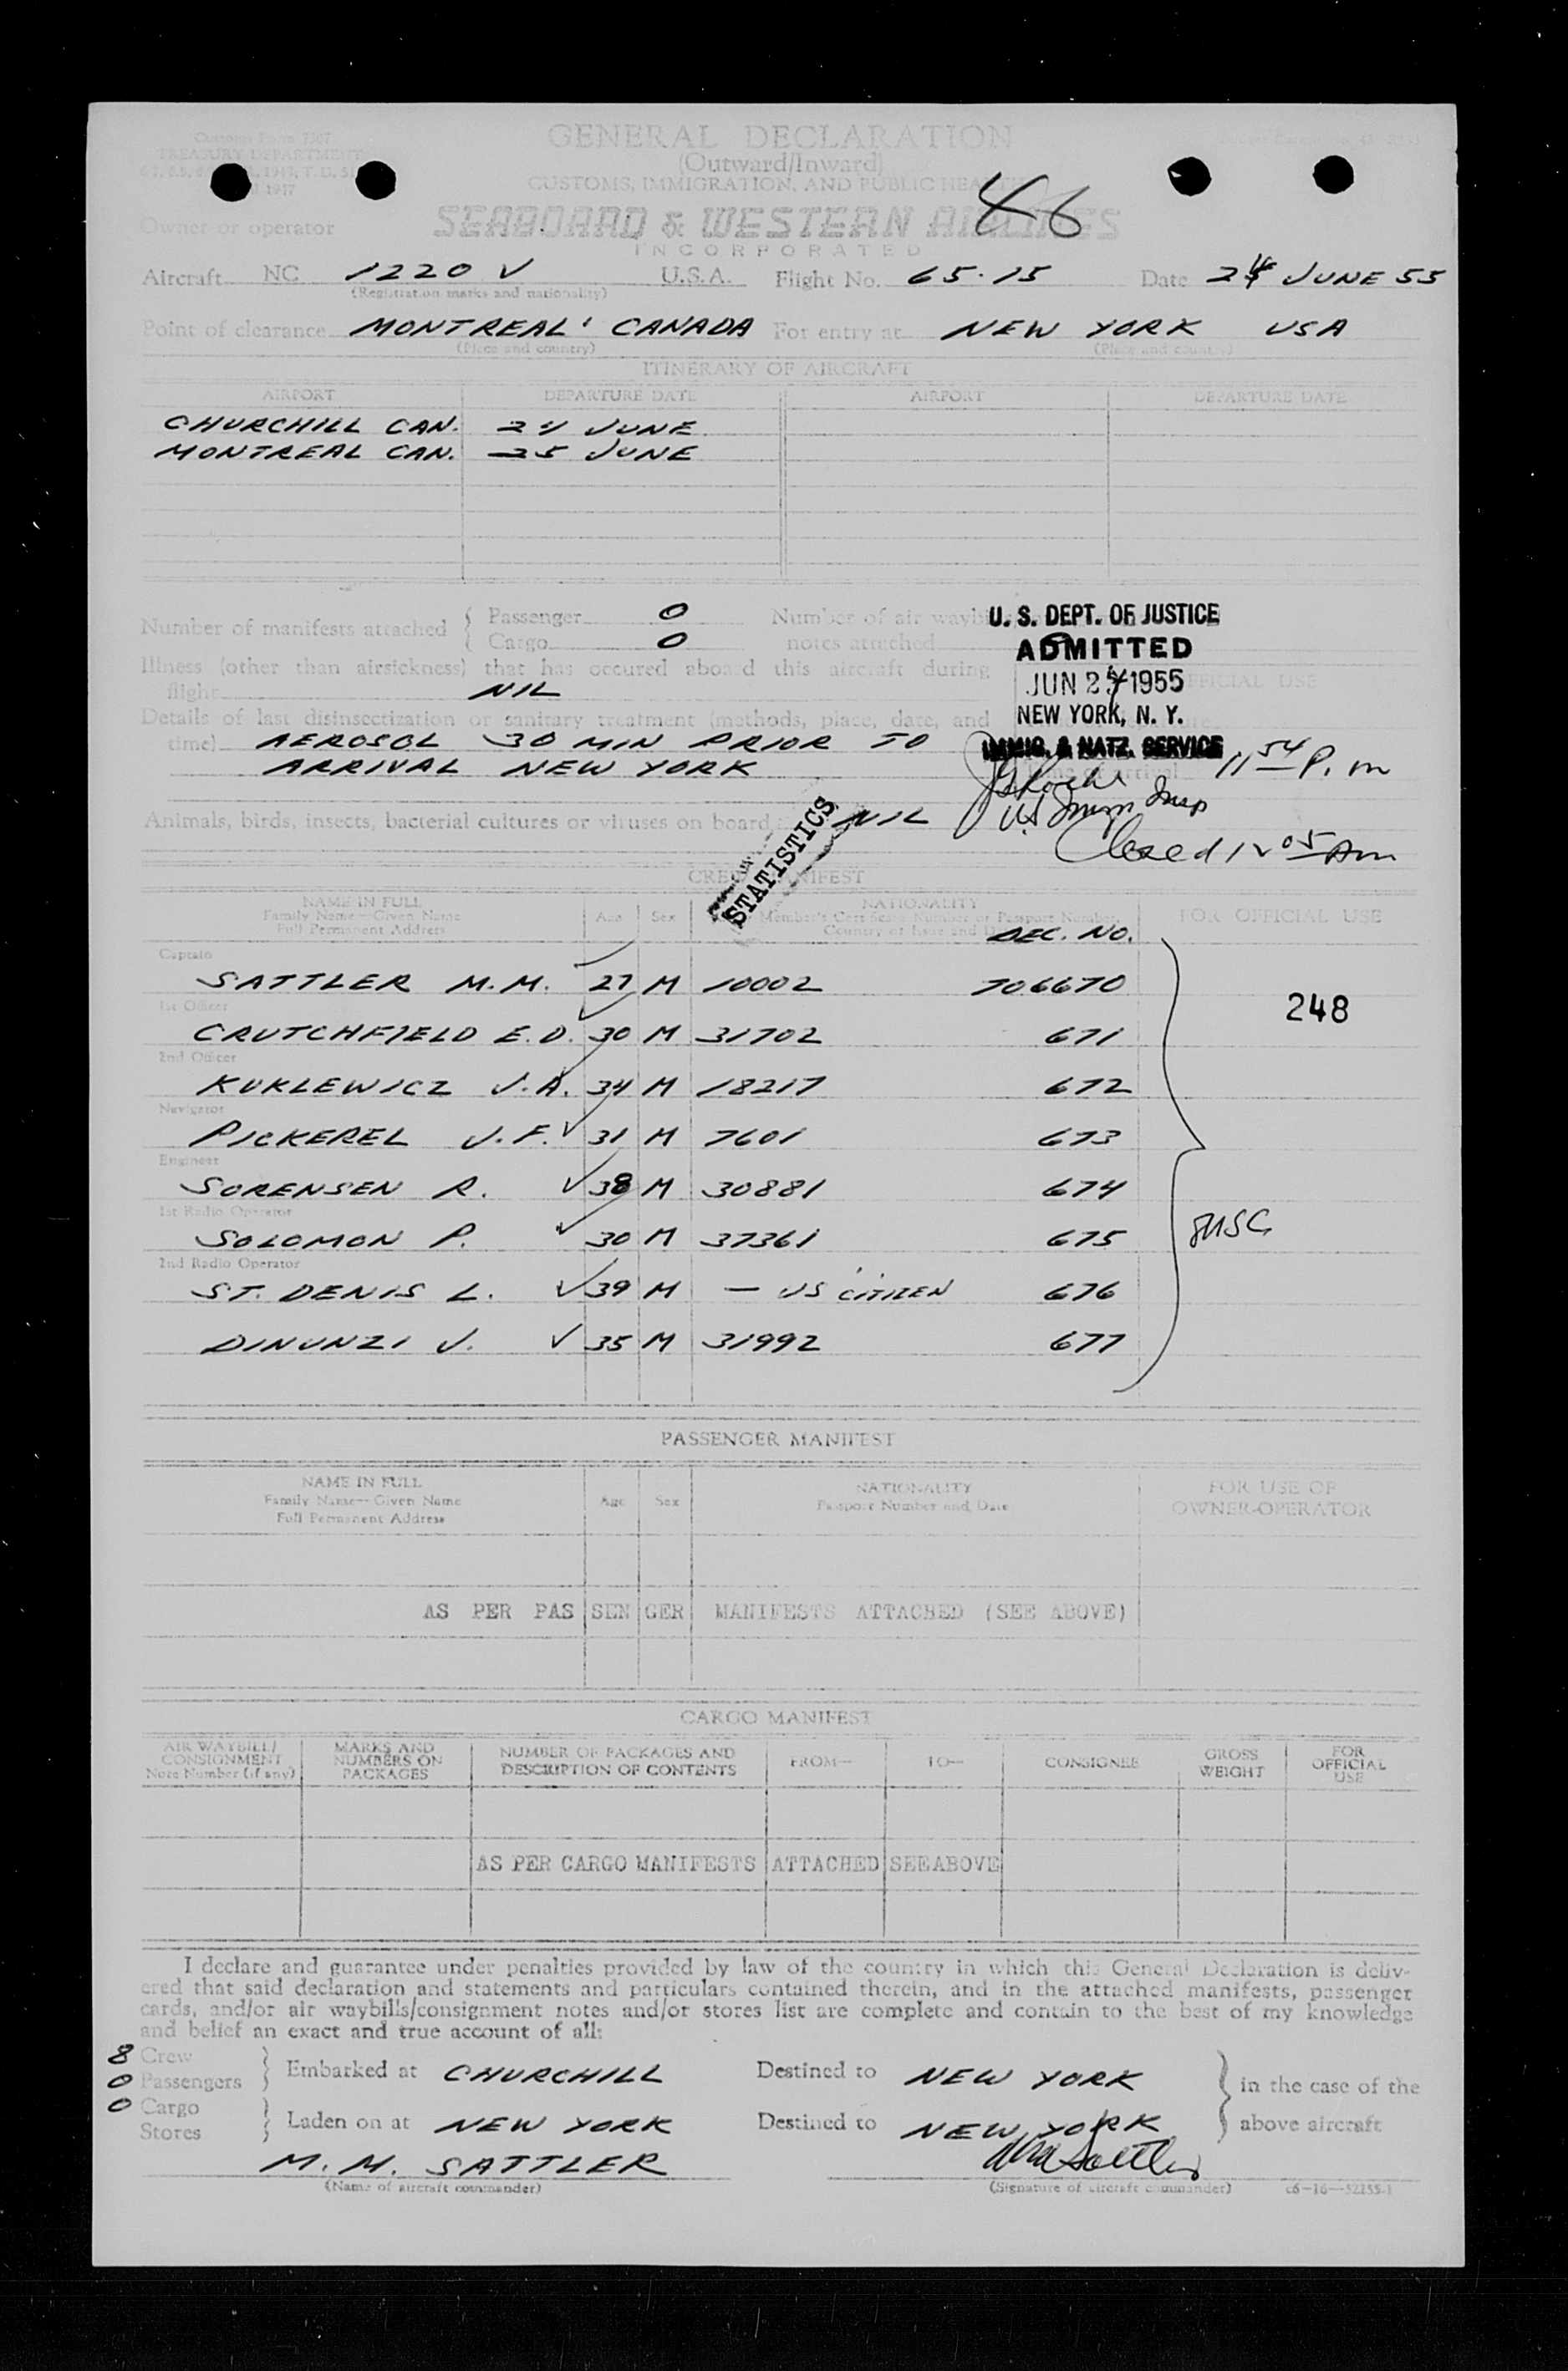 Customs Form 7507
TREASURY DEPARTMENT
1947
GENERAL DECLARATION
(Outward/Inward)
CUSTOMS, IMMIGRATION, AND PUBLIC HEALTH
46
Owner or operator
SEABOARD & WESTERN AIRLINES
INCORPORATED
Aircraft NC 1220 V U.S.A. Flight No. 65-15 Date 24 JUNE 55
(Registration marks and nationality)
Point of clearance MONTREAL, CANADA For entry at NEW YORK USA
(Place and country) (Place and country)
ITINERARY OF AIRCRAFT
AIRPORT DEPARTURE DATE AIRPORT DEPARTURE DATE
CHURCHILL CAN. 24 JUNE
MONTREAL CAN. 25 JUNE
Number of manifests attached { Passenger 0 Number of air waybi
{ Cargo 0 notes attached
U. S. DEPT. OF JUSTICE
ADMITTED
JUN 24 1955
NEW YORK, N. Y.
IMMIG. & NATZ. SERVICE
Illness (other than airsickness) that has occured aboard this aircraft during
flight NIL
OFFICIAL USE
Details of last disinsectization or sanitary treatment (methods, place, date, and
time) AEROSOL 30 MIN PRIOR TO
ARRIVAL NEW YORK
11 54 P. m
US Immn Insp
Animals, birds, insects, bacterial cultures or viruses on board: NIL
Closed 12 05 Am
STATISTICS
CREW MANIFEST
NAME IN FULL
Family Name—Given Name
Full Permanent Address
Age Sex
NATIONALITY
Member's Certificate Number or Passport Number,
Country of Issue and
DEC. NO.
FOR OFFICIAL USE
Captain
SATTLER M.M. 27 M 10002 706670
248
1st Officer
CRUTCHFIELD E.D. 30 M 31702 671
2nd Officer
KUKLEWICZ J.A. 34 M 18217 672
Navigator
PICKEREL J.F. 31 M 7601 673
Engineer
SORENSEN R. 38 M 30881 674
1st Radio Operator
SOLOMON P. 30 M 37361 675
8USC
2nd Radio Operator
ST. DENIS L. 39 M — US CITIZEN 676
DINUNZI J. 35 M 31992 677
PASSENGER MANIFEST
NAME IN FULL
Family Name—Given Name
Full Permanent Address
Age Sex
NATIONALITY
Passport Number and Date
FOR USE OF
OWNER-OPERATOR
AS PER PAS SEN GER MANIFESTS ATTACHED (SEE ABOVE)
CARGO MANIFEST
AIR WAYBILL/
CONSIGNMENT
Note Number (if any)
MARKS AND
NUMBERS ON
PACKAGES
NUMBER OF PACKAGES AND
DESCRIPTION OF CONTENTS
FROM— TO— CONSIGNEE
GROSS
WEIGHT
FOR
OFFICIAL
USE
AS PER CARGO MANIFESTS ATTACHED SEE ABOVE
I declare and guarantee under penalties provided by law of the country in which this General Declaration is deliv-
ered that said declaration and statements and particulars contained therein, and in the attached manifests, passenger
cards, and/or air waybills/consignment notes and/or stores list are complete and contain to the best of my knowledge
and belief an exact and true account of all:
8 Crew
0 Passengers } Embarked at CHURCHILL Destined to NEW YORK } in the case of the
0 Cargo
Stores } Laden on at NEW YORK Destined to NEW YORK } above aircraft
M. M. SATTLER MM Sattler
(Name of aircraft commander) (Signature of aircraft commander) c6-16—52255-1